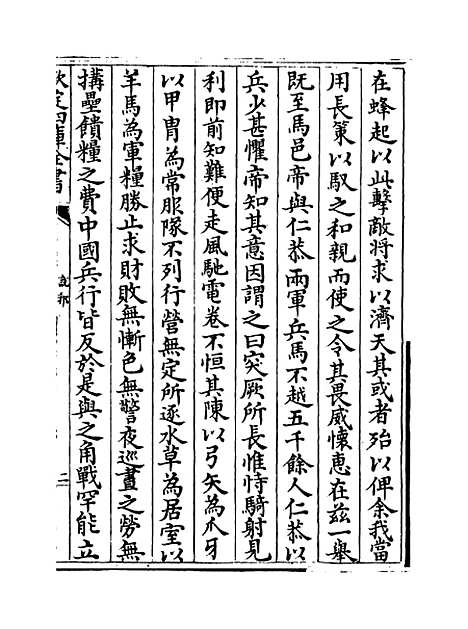 在蜂起以此擊敵將求以濟天其或者殆以俾余我當
用長策以馭之和親而使之令其畏威懷恵在兹一舉
既至馬邑帝與仁恭兩軍兵馬不越五千餘人仁恭以
兵少甚懼帝知其意因謂之曰突厥所長惟恃騎射見
利即前知難便走風馳電卷不恒其陳以弓矢為爪牙
以甲胄為常服隊不列行營無定所逐水草為居室以
羊馬為軍糧勝止求財敗無慚色無警夜巡晝之勞無
搆壘饋糧之費中國兵行皆反於是與之角戰罕能立
欽定四庫全書
二